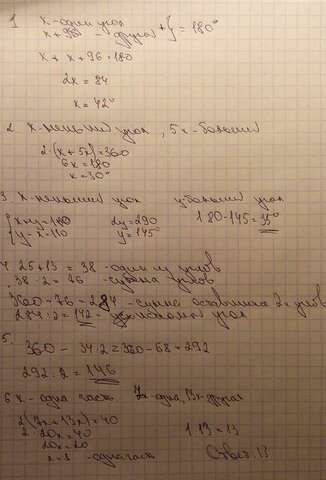 1 x-один угол
x+96 - другой +} = 180°
x + x + 96 = 180
2x = 84
x = 42°
2 x-меньший угол, 5x-больший
2·(x + 5x) = 360
6x = 180
x = 30°
3 x-меньший угол y-больший угол
{x+y=180 2y=290 180-145=35°
{y-x=110 y=145°
4. 25+13 = 38 - один из углов
38·2 = 76 - сумма углов
360-76=284 - сумма оставшихся 2х углов
284:2=142 - угол
5.
360 - 34·2=360-68=292
292:2=146
6 x-одна часть 7x-одна, 13x-другая
2(7x+13x)=40
2·20x=40 1·13=13
20x=20
x=1 -одна часть Ответ 13